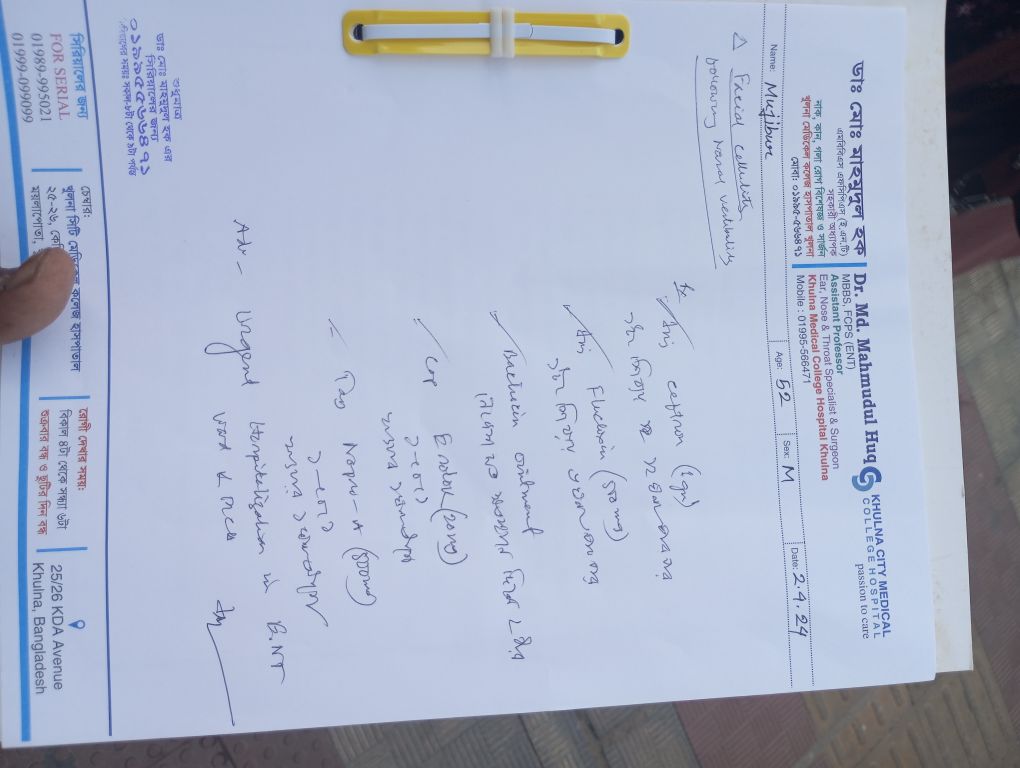 ডাঃ মোঃ মাহমুদুল হক
এমবিবিএস এফসিপিএস (ই.এন.টি)
সহকারী অধ্যাপক
নাক, কান, গলা রোগ বিশেষজ্ঞ ও সার্জন
খুলনা মেডিকেল কলেজ হাসপাতাল খুলনা
মোবা: ০১৯৯৫-৫৬৬৪৭১
Dr. Md. Mahmudul Huq
MBBS, FCPS (ENT)
Assistant Professor
Ear, Nose & Throat Specialist & Surgeon
Khulna Medical College Hospital Khulna
Mobile : 01995-566471
KHULNA CITY MEDICAL
COLLEGE HOSPITAL
passion to care
Name: Mujibur Age: 52 Sex: M Date: 2.4.24
Δ Facial cellulitis
following Nasal vestibulitis
Rx
Inj Ceftron (1gm)
১টা শিরায় ১২ ঘন্টা পর পর
Inj Flucloxin (500 mg)
১টা শিরায় ৬ ঘন্টা পর পর
Bactrocin ointment
দিনে ২ বার
Cap (20mg)
১-০-১
Tab Napro-A (500mg)
১-০-১
Adv - Urgent Hospitalization in E.N.T
ward KMCH
শুধুমাত্র
ডাঃ মোঃ মাহমুদুল হক এর
সিরিয়ালের জন্য
০১৯৯৫৫৬৬৪৭১
সময়ঃ সকাল-৮টা থেকে ৯টা পর্যন্ত
সিরিয়ালের জন্য
FOR SERIAL
01989-995021
01999-099099
চেম্বার:
খুলনা সিটি মেডিকেল কলেজ হাসপাতাল
২৫-২৬,
ময়লাপোতা,
রোগী দেখার সময়:
বিকাল ৪টা থেকে সন্ধ্যা ৬টা
শুক্রবার বন্ধ ও ছুটির দিন বন্ধ
25/26 KDA Avenue
Khulna, Bangladesh